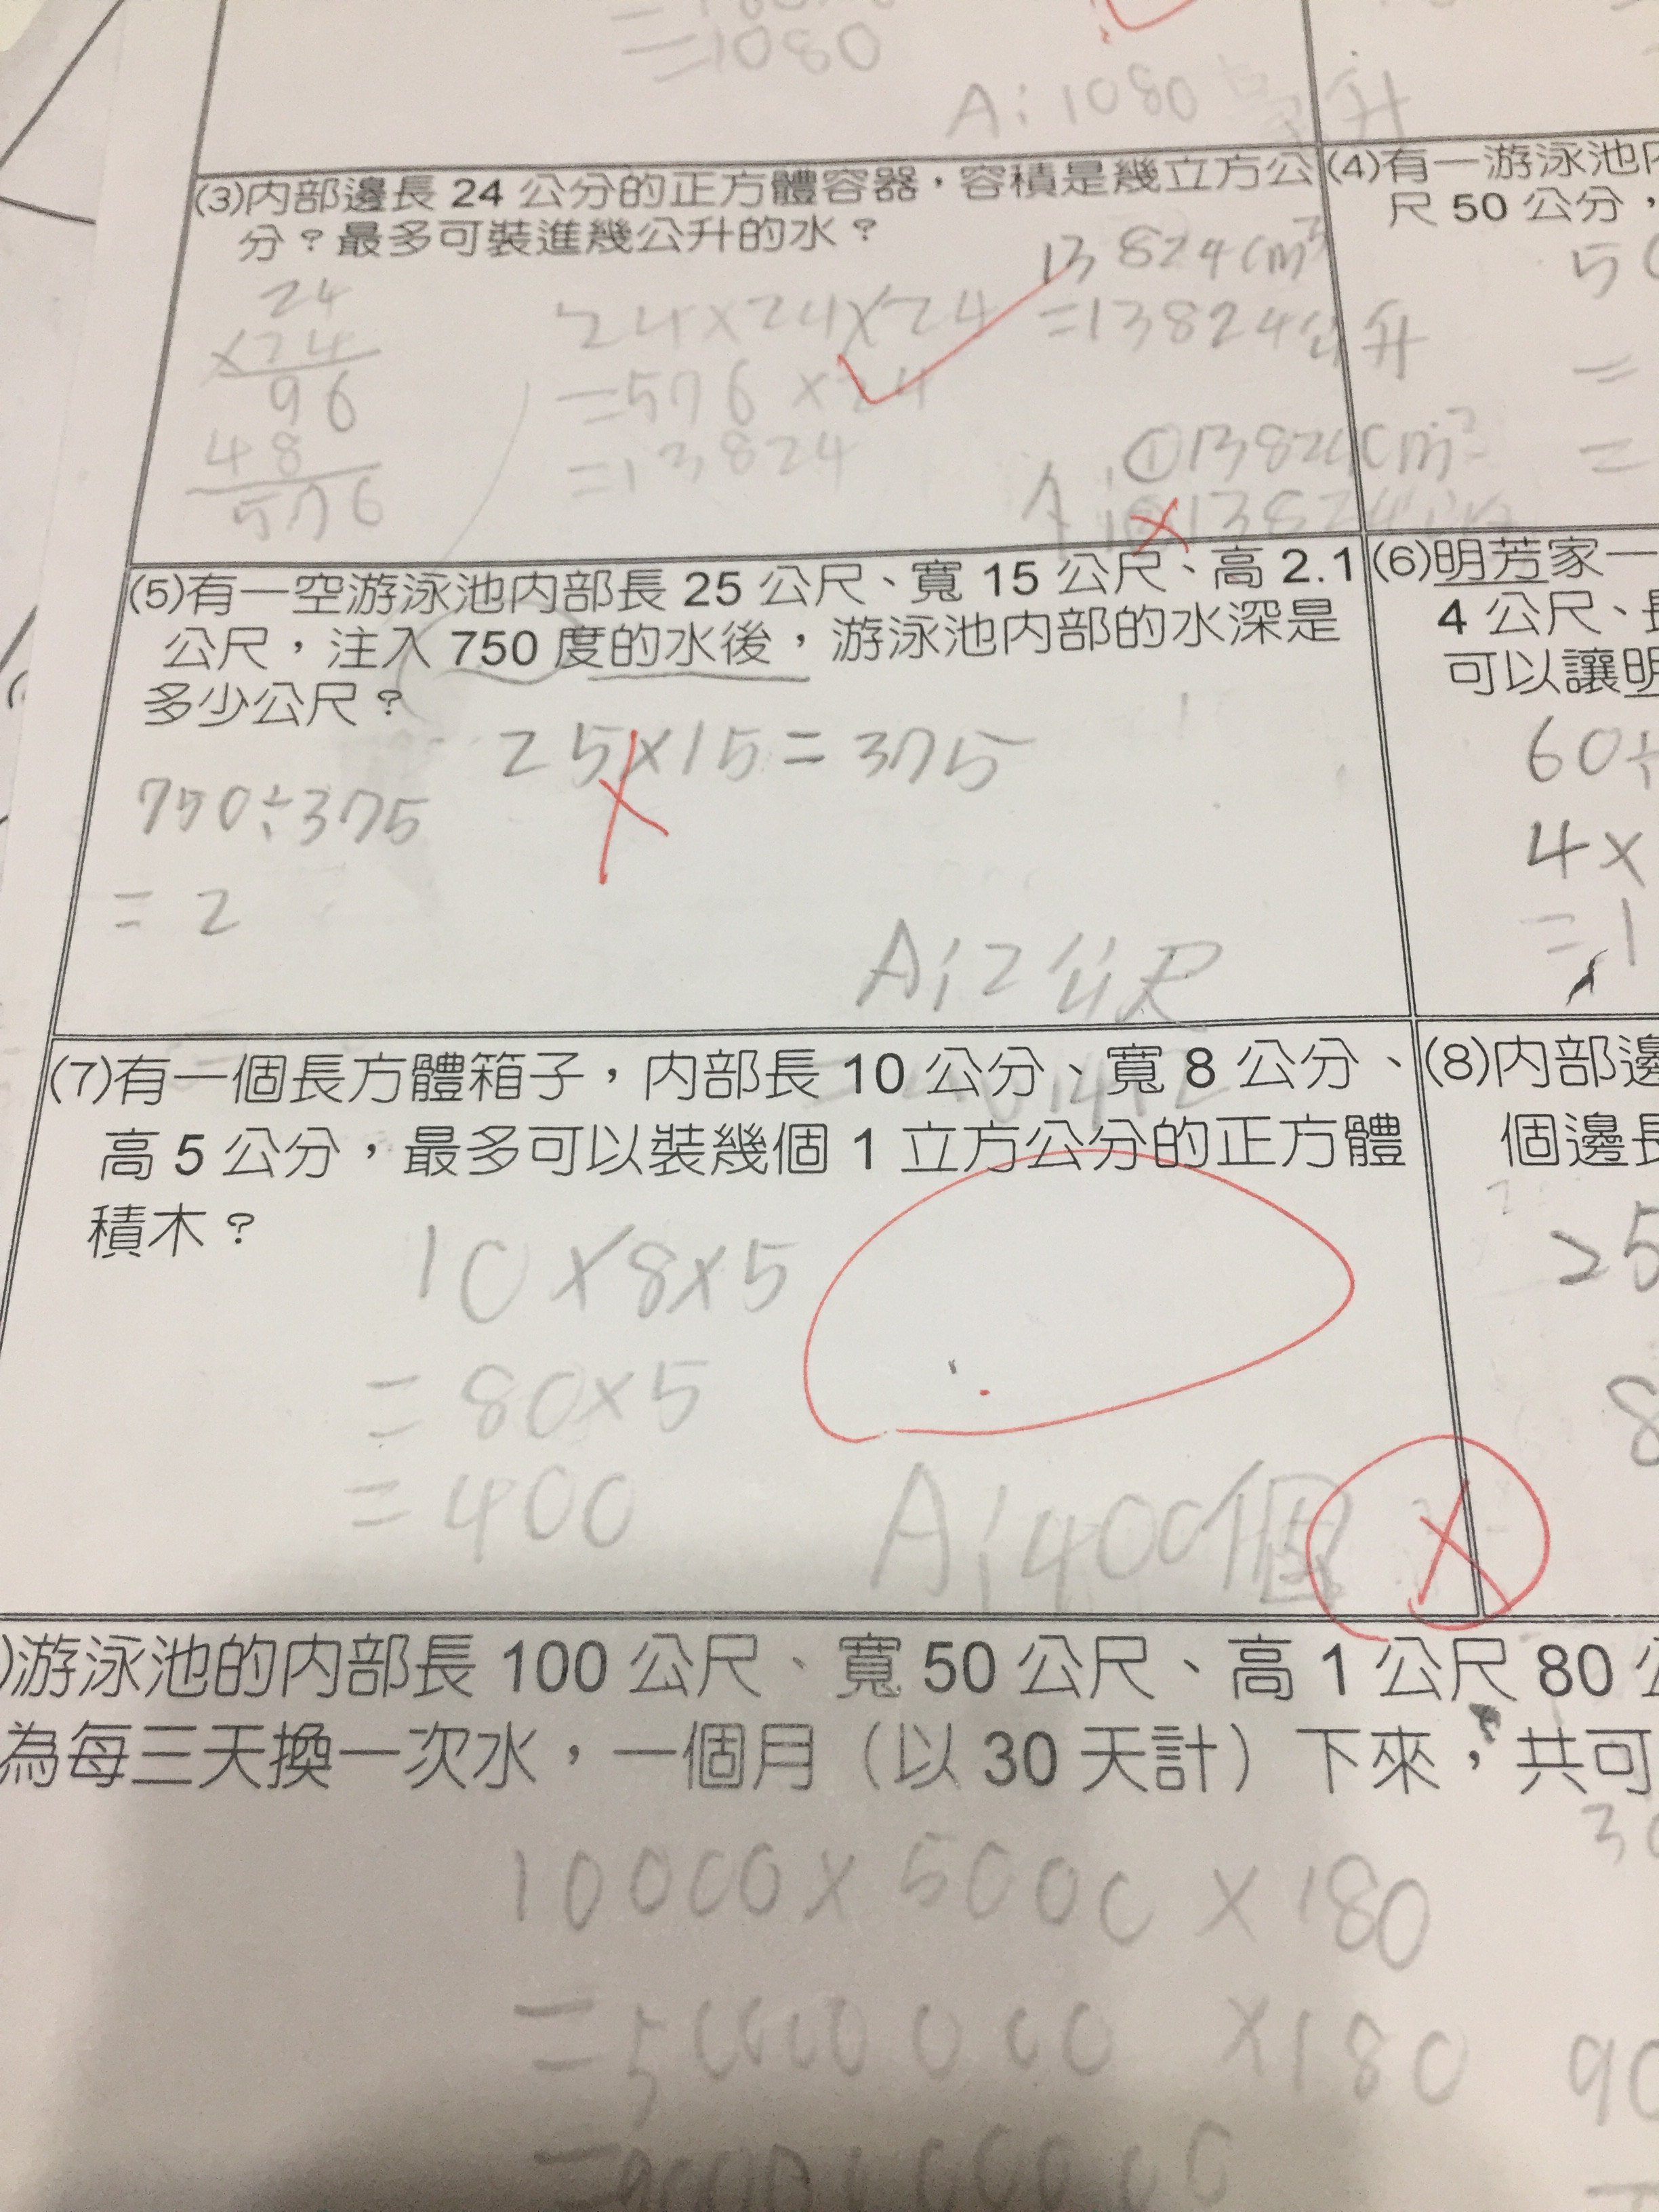 =1080
A:1080
升
(3)內部邊長 24 公分的正方體容器，容積是幾立方公
分？最多可裝進幾公升的水？
24
×24
96
48
576
24×24×24
=576×24
=13824
13824cm³
=13824公升
A:①13824cm³
(4)有一游泳池內
尺 50 公分，
=
=
(5)有一空游泳池內部長 25 公尺、寬 15 公尺、高 2.1
公尺，注入 750 度的水後，游泳池內部的水深是
多少公尺？
25×15=375
750÷375
=2
A:2公尺
(6)明芳家一
4 公尺、長
可以讓明
60÷
4×
=1
(7)有一個長方體箱子，內部長 10 公分、寬 8 公分、
高 5 公分，最多可以裝幾個 1 立方公分的正方體
積木？
10×8×5
=80×5
=400
A:400個
(8)內部邊
個邊長
25
8
)游泳池的內部長 100 公尺、寬 50 公尺、高 1 公尺 80 公
為每三天換一次水，一個月（以 30 天計）下來，共可
10000×5000×180
=50000000×180
30
90